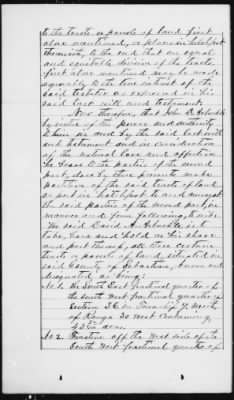 to the tracts or parcels of land first
above mentioned, or places in hotchpot
themselves, to the end that an equal
and equitable division of the tracts
first above mentioned may be made
agreeably to the true intent of the
said testator as expressed in his
said last will and testament.
Now therefore, that John D. Arbuckle
by virtue of the power and authority
to him in and by the said last will
and testament and in consideration
of the natural love and affection
he bears to the parties of the second
part, does by these presents make
partition of the said tracts of land
so put in hotchpot to and amongst
the said parties of the second part, in
manner and form following, to wit:
The said David A. Arbuckle is to
take, have and hold as his share
and part thereof, all those certain
tracts or parcels of land, situated in
said County of Sebastian, known and
designated as being:
No. 1. the South East fractional quarter of
the South West fractional quarter of
Section 36 in Township 9, North
of Range 30 West Containing
acres.
No 2. Fraction off the West side of the
South West fractional quarter of